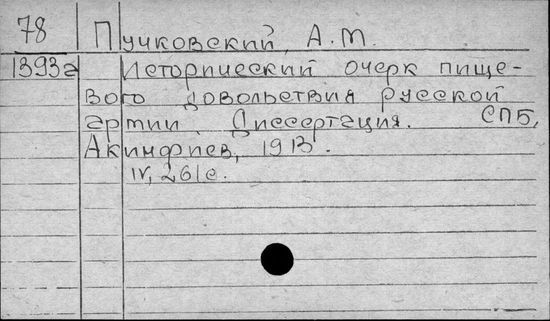 78 Пучковский, А.М.
1393г Исторический очерк пище-
вого довольствия русской
армии. Диссертация. СПБ,
Акинфиев, 1913.
IV, 261с.